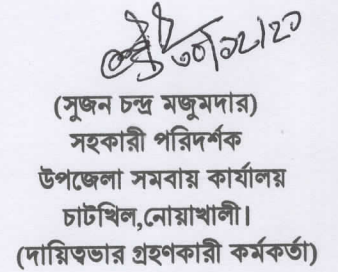 ৩০/১২/২০
(সুজন চন্দ্র মজুমদার)
সহকারী পরিদর্শক
উপজেলা সমবায় কার্যালয়
চাটখিল,নোয়াখালী।
(দায়িত্বভার গ্রহণকারী কর্মকর্তা)